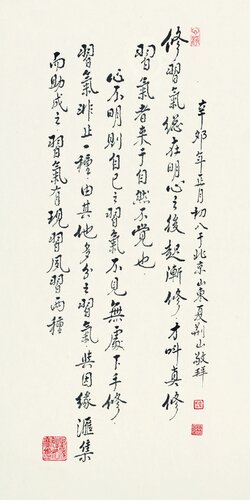 修習氣總在明心之後起漸修才叫真修
習氣者来于自然不覺也
心不明則自己之習氣不見無處下手修
習氣非止一種由其他多分之習氣與因緣滙集
而助成之習氣有現習風習兩種
辛卯年正月初八于北京山東夏荆山敬拜